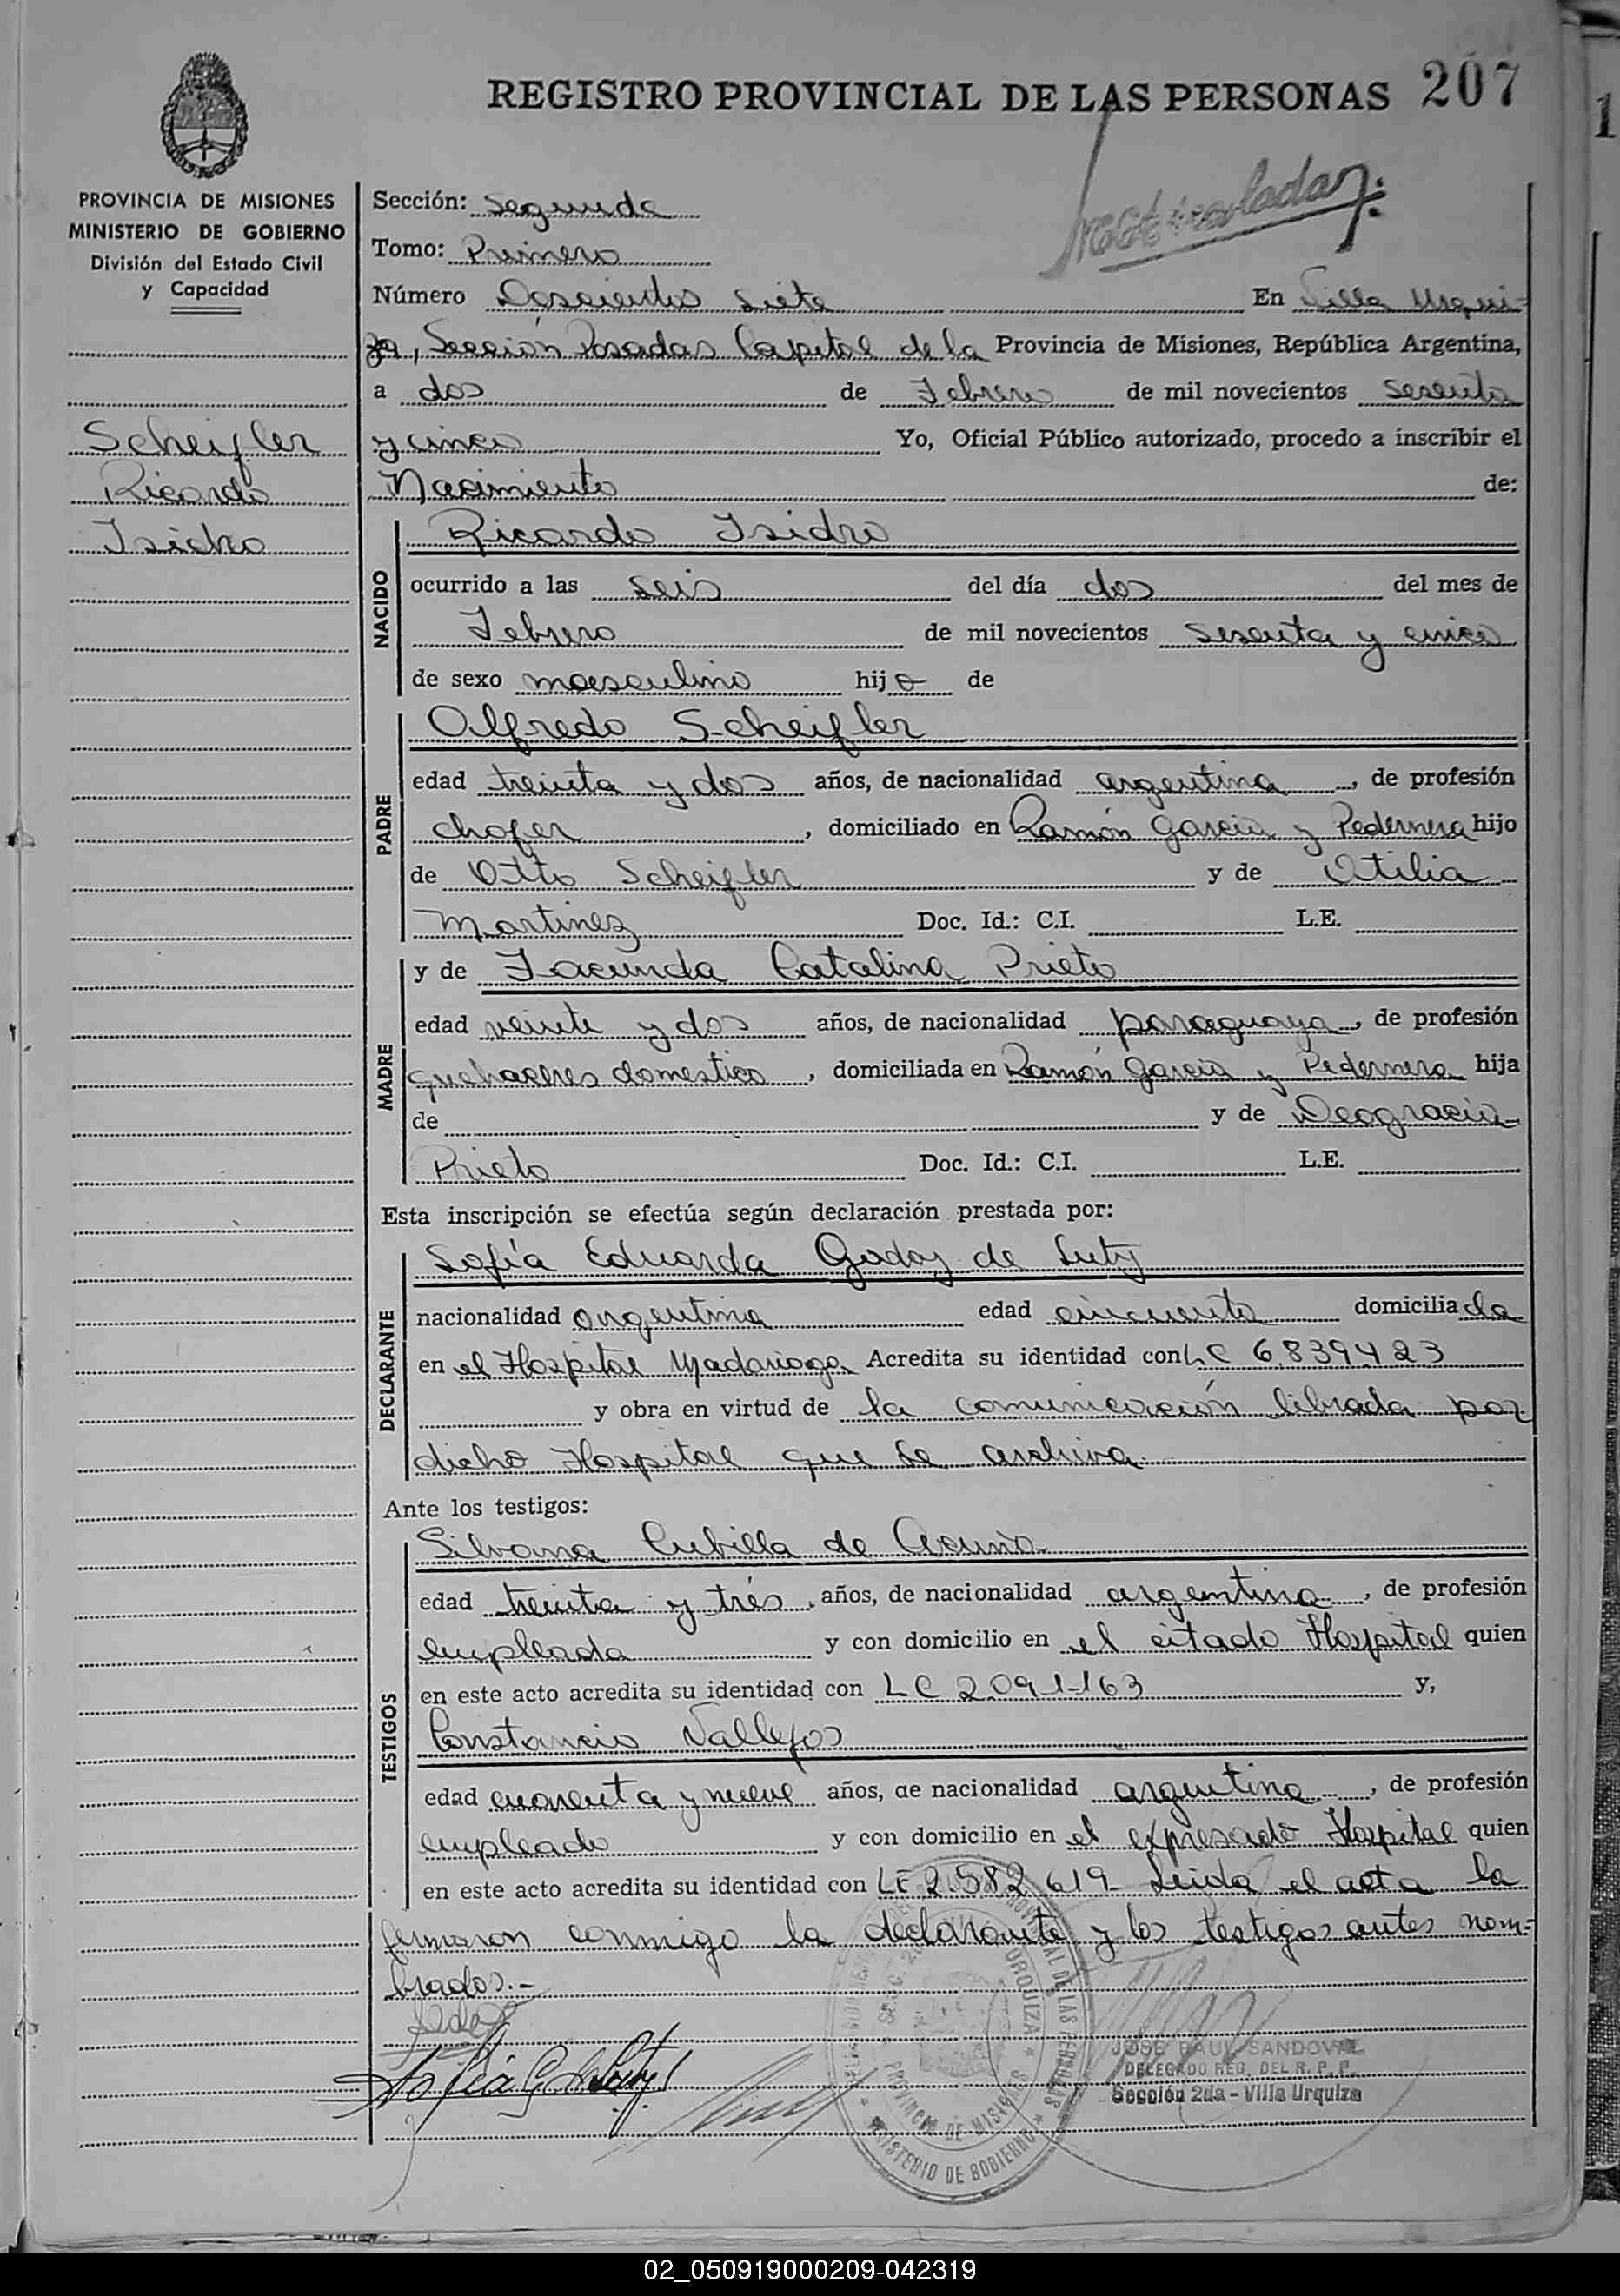 REGISTRO PROVINCIAL DE LAS PERSONAS 207
PROVINCIA DE MISIONES
MINISTERIO DE GOBIERNO
División del Estado Civil
y Capacidad
Scheifler
Ricardo
Isidro
Sección: Segunda
Tomo: Primero
Número Doscientos siete En Villa Urqui-
za, Sección Posadas Capital de la Provincia de Misiones, República Argentina,
a dos de Febrero de mil novecientos sesenta
y cinco Yo, Oficial Público autorizado, procedo a inscribir el
Nacimiento de:
NACIDO
Ricardo Isidro
ocurrido a las seis del día dos del mes de
Febrero de mil novecientos sesenta y cinco
de sexo masculino hijo de
PADRE
Alfredo Scheifler
edad treinta y dos años, de nacionalidad argentina, de profesión
chofer, domiciliado en Ramón García y Pedernera hijo
de Otto Scheifler y de Otilia
Martinez Doc. Id.: C.I. L.E.
MADRE
y de Facunda Catalina Prieto
edad veinte y dos años, de nacionalidad paraguaya, de profesión
quehaceres domestico, domiciliada en Ramón García y Pedernera hija
de y de Deogracia
Prieto Doc. Id.: C.I. L.E.
Esta inscripción se efectúa según declaración prestada por:
DECLARANTE
Sofía Eduarda Godoy de Luty
nacionalidad argentina edad cincuenta domiciliada
en el Hospital Madariaga Acredita su identidad con LC 6.839423
y obra en virtud de la comunicación librada por
dicho Hospital que se archiva.
Ante los testigos:
TESTIGOS
Silvana Cubilla de Acuña
edad treinta y trés, años, de nacionalidad argentina, de profesión
empleada y con domicilio en el citado Hospital quien
en este acto acredita su identidad con LC 2.091.163 y,
Constancio Vallejos
edad cuarenta y nueve años, de nacionalidad argentina, de profesión
empleado y con domicilio en el expresado Hospital quien
en este acto acredita su identidad con LE 2.582.619- Leida el acta la
firmaron conmigo la declarante y los testigos antes nom-
brados.-
Sofía G de Luty
JOSE RAUL SANDOVAL
DELEGADO REG. DEL R. P. P.
Sección 2da - Villa Urquiza
URQUIZA
PROVINCIA DE MISIONES
MINISTERIO DE GOBIERNO
02_050919000209-042319